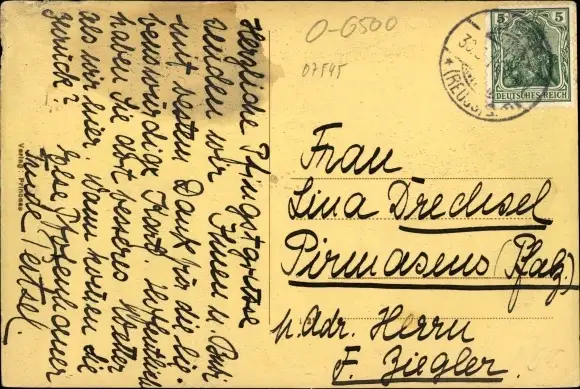 O-6500
07545
5 5
DEUTSCHES REICH
(REUSS)
Herzliche Pfingstgrüsse
senden wir Ihnen u.
mit bestem Dank für die lie-
benswürdige Karte. Hoffentlich
haben Sie dort besseres Wetter
als wir hier. Wann kommen Sie
zurück?
Verlag: Princess
Frau
Lina Drechsel
Pirmasens (Pfalz.)
p. Adr. Herrn
F. Ziegler.